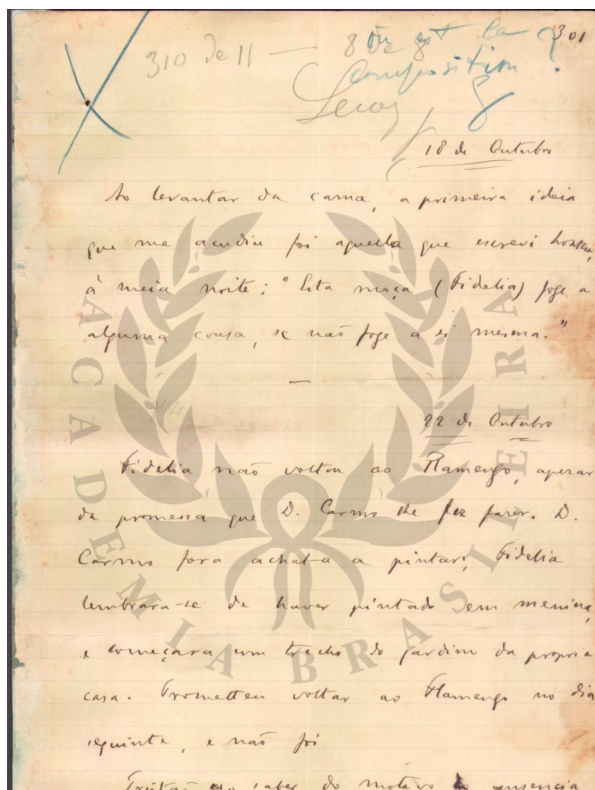 301
310 de 11 — 8 où est la ?
composition
Leroy
18 de Outubro
Ao levantar da cama, a primeira ideia
que me acudiu foi aquella que escrevi hontem,
á meia noite: "Esta moça (Fidelia) foge a
alguma cousa, se não foge a si mesma."
—
22 de Outubro
Fidelia não voltou ao Flamengo, apesar
da promessa que D. Carmo lhe fez fazer. D.
Carmo fora achal-a a pintar; Fidelia
lembrara-se de haver pintado em menina,
e começara um trecho do jardim da propria
casa. Prometteu voltar ao Flamengo no dia
seguinte, e não foi
Tratão ao saber do motivo da ausencia
ACADEMIA BRASILEIRA